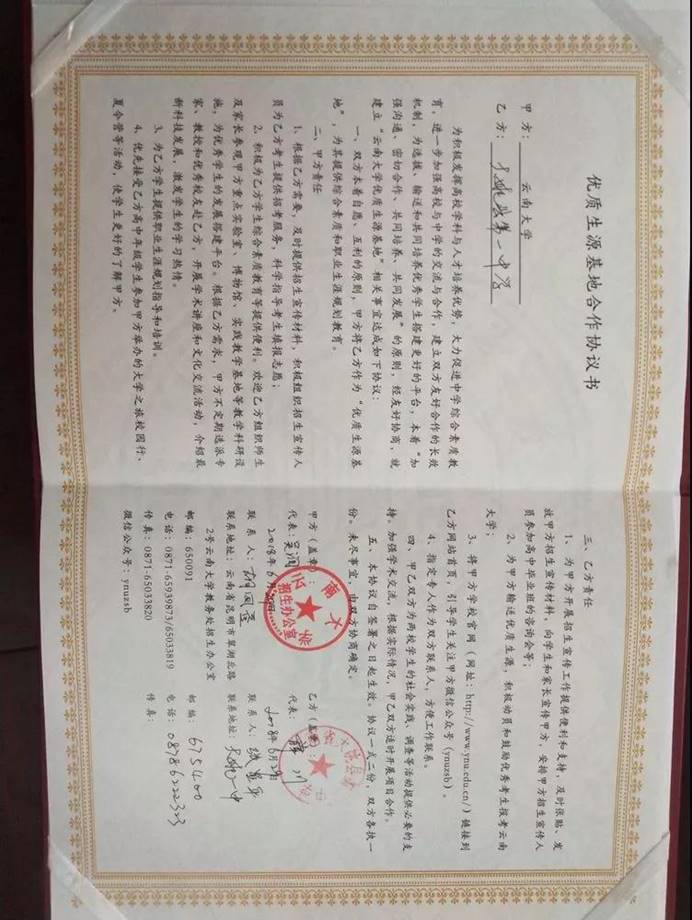 优质生源基地合作协议书
甲 方： 云南大学
乙 方： 大姚县第一中学
为积极发挥高校学科与人才培养优势，大力促进中学综合素质教
育，进一步加强高校与中学的交流与合作，建立双方友好合作的长效
机制，为选拔、输送和共同培养优秀学生搭建更好的平台，本着“加
强沟通、密切合作、共同培养、共同发展”的原则，经友好协商，就
建立“云南大学优质生源基地”相关事宜达成如下协议：
一、双方本着自愿、互利的原则，甲方将乙方作为“优质生源基
地”，为其提供综合素质和职业生涯规划教育。
二、甲方责任
1、根据乙方需要，及时提供招生宣传材料，积极组织招生宣传人
员为乙方考生提供招考服务，科学指导考生填报志愿；
2、积极为乙方学生综合素质教育等提供便利。欢迎乙方组织师生
及家长参观甲方重点实验室、博物馆、实践教学基地等教学科研设
施，为优秀学生的发展搭建平台。根据乙方需求，甲方不定期选派专
家、教授和优秀校友赴乙方，开展学术讲座和文化交流活动，介绍最
新科技发展，激发学生的学习热情。
3、为乙方学生提供职业生涯规划指导和培训。
4、优先接受乙方高中年级学生参加甲方举办的大学之旅校园行、
夏令营等活动，使学生更好的了解甲方。
三、乙方责任
1、为甲方开展招生宣传工作提供便利和支持，及时张贴、发
放甲方招生宣传材料，向学生和家长宣传甲方，安排甲方招生宣传人
员参加高中毕业班的咨询会等；
2、为甲方输送优质生源，积极动员和鼓励优秀考生报考云南
大学；
3、将甲方学校官网（网址：http://www.ynu.edu.cn/）链接到
乙方网站首页，引导学生关注甲方微信公众号（ynuzsb）。
4、指定专人作为双方联系人，方便工作联系。
四、甲乙双方为两校学生的社会实践、调查等活动提供必要的支
持。加强学术交流，根据实际情况，甲乙双方适时开展项目合作。
五、本协议自签署之日起生效。协议一式二份，双方各执一
份。未尽事宜，由双方协商确定。
甲方（盖章）：
代表：
2018年6月
联 系 人：
联系地址：云南省昆明市翠湖北路
2号云南大学教务处招生办公室
邮 编：650091
电 话：0871-65939873/65033819
传 真：0871-65033820
微信公众号：ynuzsb
乙方（盖章）：
代表：
2018年6月29日
联 系 人：
联系地址：大姚一中
邮 编：675400
电 话：08786222323
传 真：
招生办公室